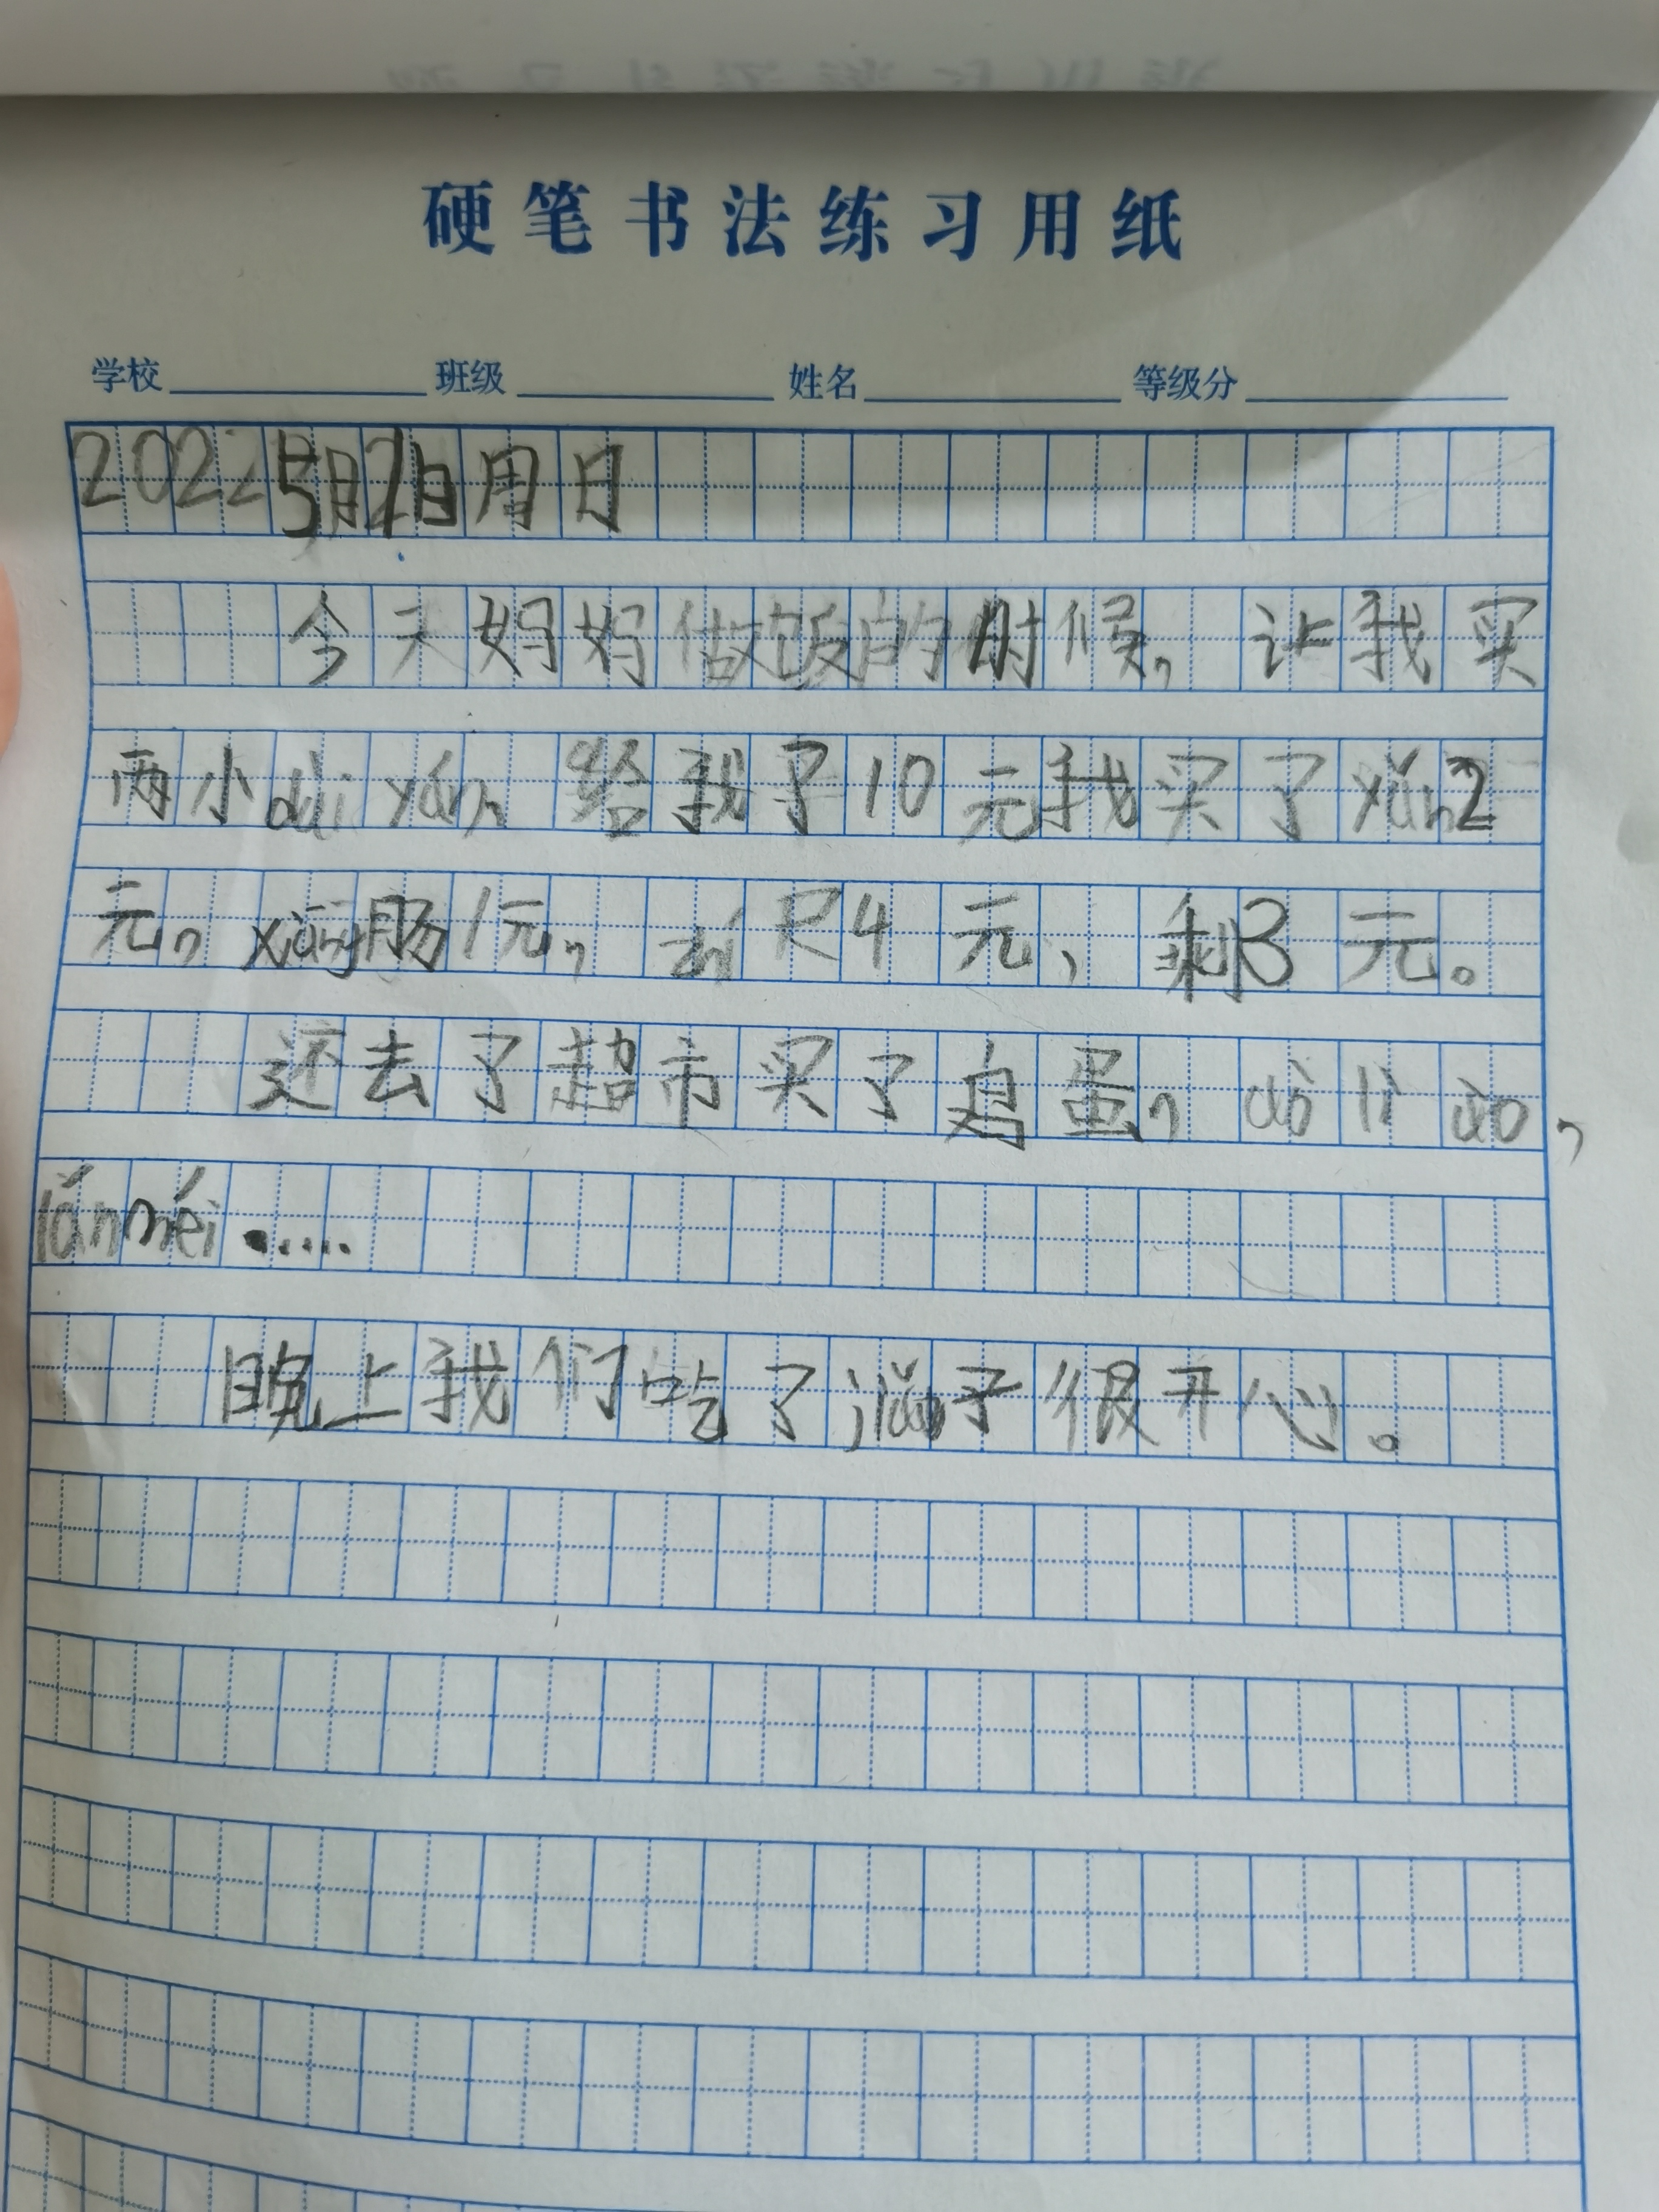 硬笔书法练习用纸
学校 班级 姓名 等级分
2022 5月2日周日
今天妈妈做饭的时候，让我买
两小dài yán 给我了10元我买了yán2
元，xiāng肠1元，zhí尺4元，剩3元。
还去了超市买了鸡蛋，
lán méi.....
晚上我们吃了jiǎo子很开心。